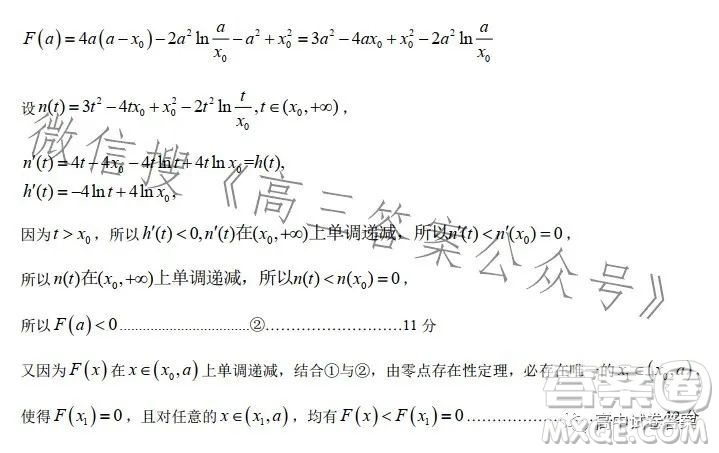 F(a)=4a(a-x₀)-2a²ln(a/x₀)-a²+x₀²=3a²-4ax₀+x₀²-2a²ln(a/x₀)
设n(t)=3t²-4tx₀+x₀²-2t²ln(t/x₀),t∈(x₀,+∞),
n′(t)=4t-4x₀-4tlnt+4tlnx₀=h(t),
h′(t)=-4lnt+4lnx₀,
因为t>x₀,所以h′(t)<0,n′(t)在(x₀,+∞)上单调递减,所以n′(t)<n′(x₀)=0,
所以n(t)在(x₀,+∞)上单调递减,所以n(t)<n(x₀)=0,
所以F(a)<0..................................②...........................11分
又因为F(x)在x∈(x₀,a)上单调递减,结合①与②,由零点存在性定理,必存在唯一的x₁∈(x₀,a),
使得F(x₁)=0,且对任意的x∈(x₁,a),均有F(x)<F(x₁)=0...........................
微信搜《高三答案公众号》
高中试卷答案
答案圈
MXQE.COM